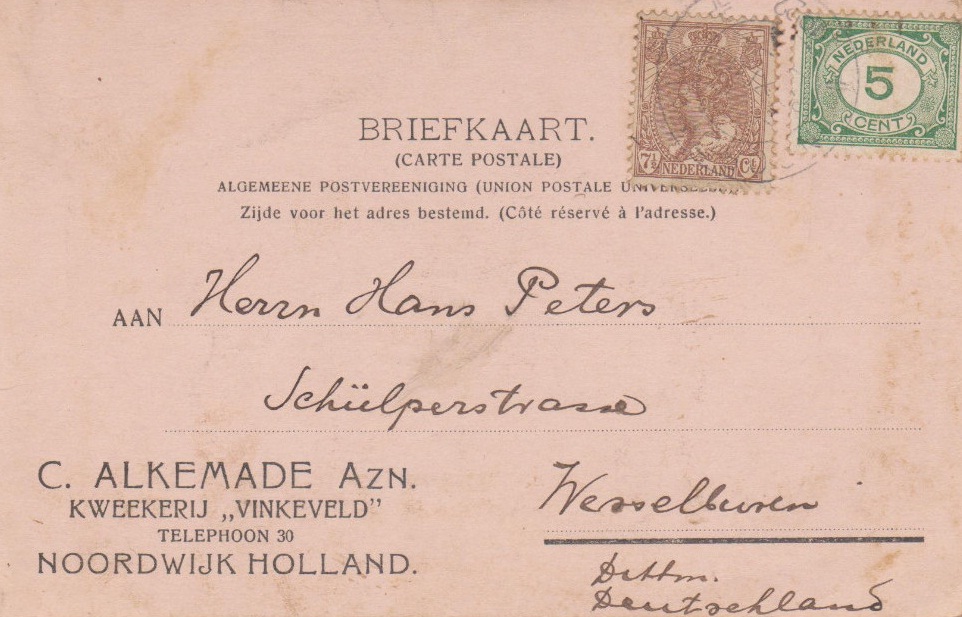 NEDERLAND
5
CENT
7½ Ct
NEDERLAND
BRIEFKAART.
(CARTE POSTALE)
ALGEMEENE POSTVEREENIGING (UNION POSTALE UNIVERSELLE)
Zijde voor het adres bestemd. (Côté réservé à l'adresse.)
AAN Herrn Hans Peters
Schülperstrasse
C. ALKEMADE AZN.
KWEEKERIJ „VINKEVELD”
TELEPHOON 30
NOORDWIJK HOLLAND.
Wesselburen
Dithm.
Deutschland